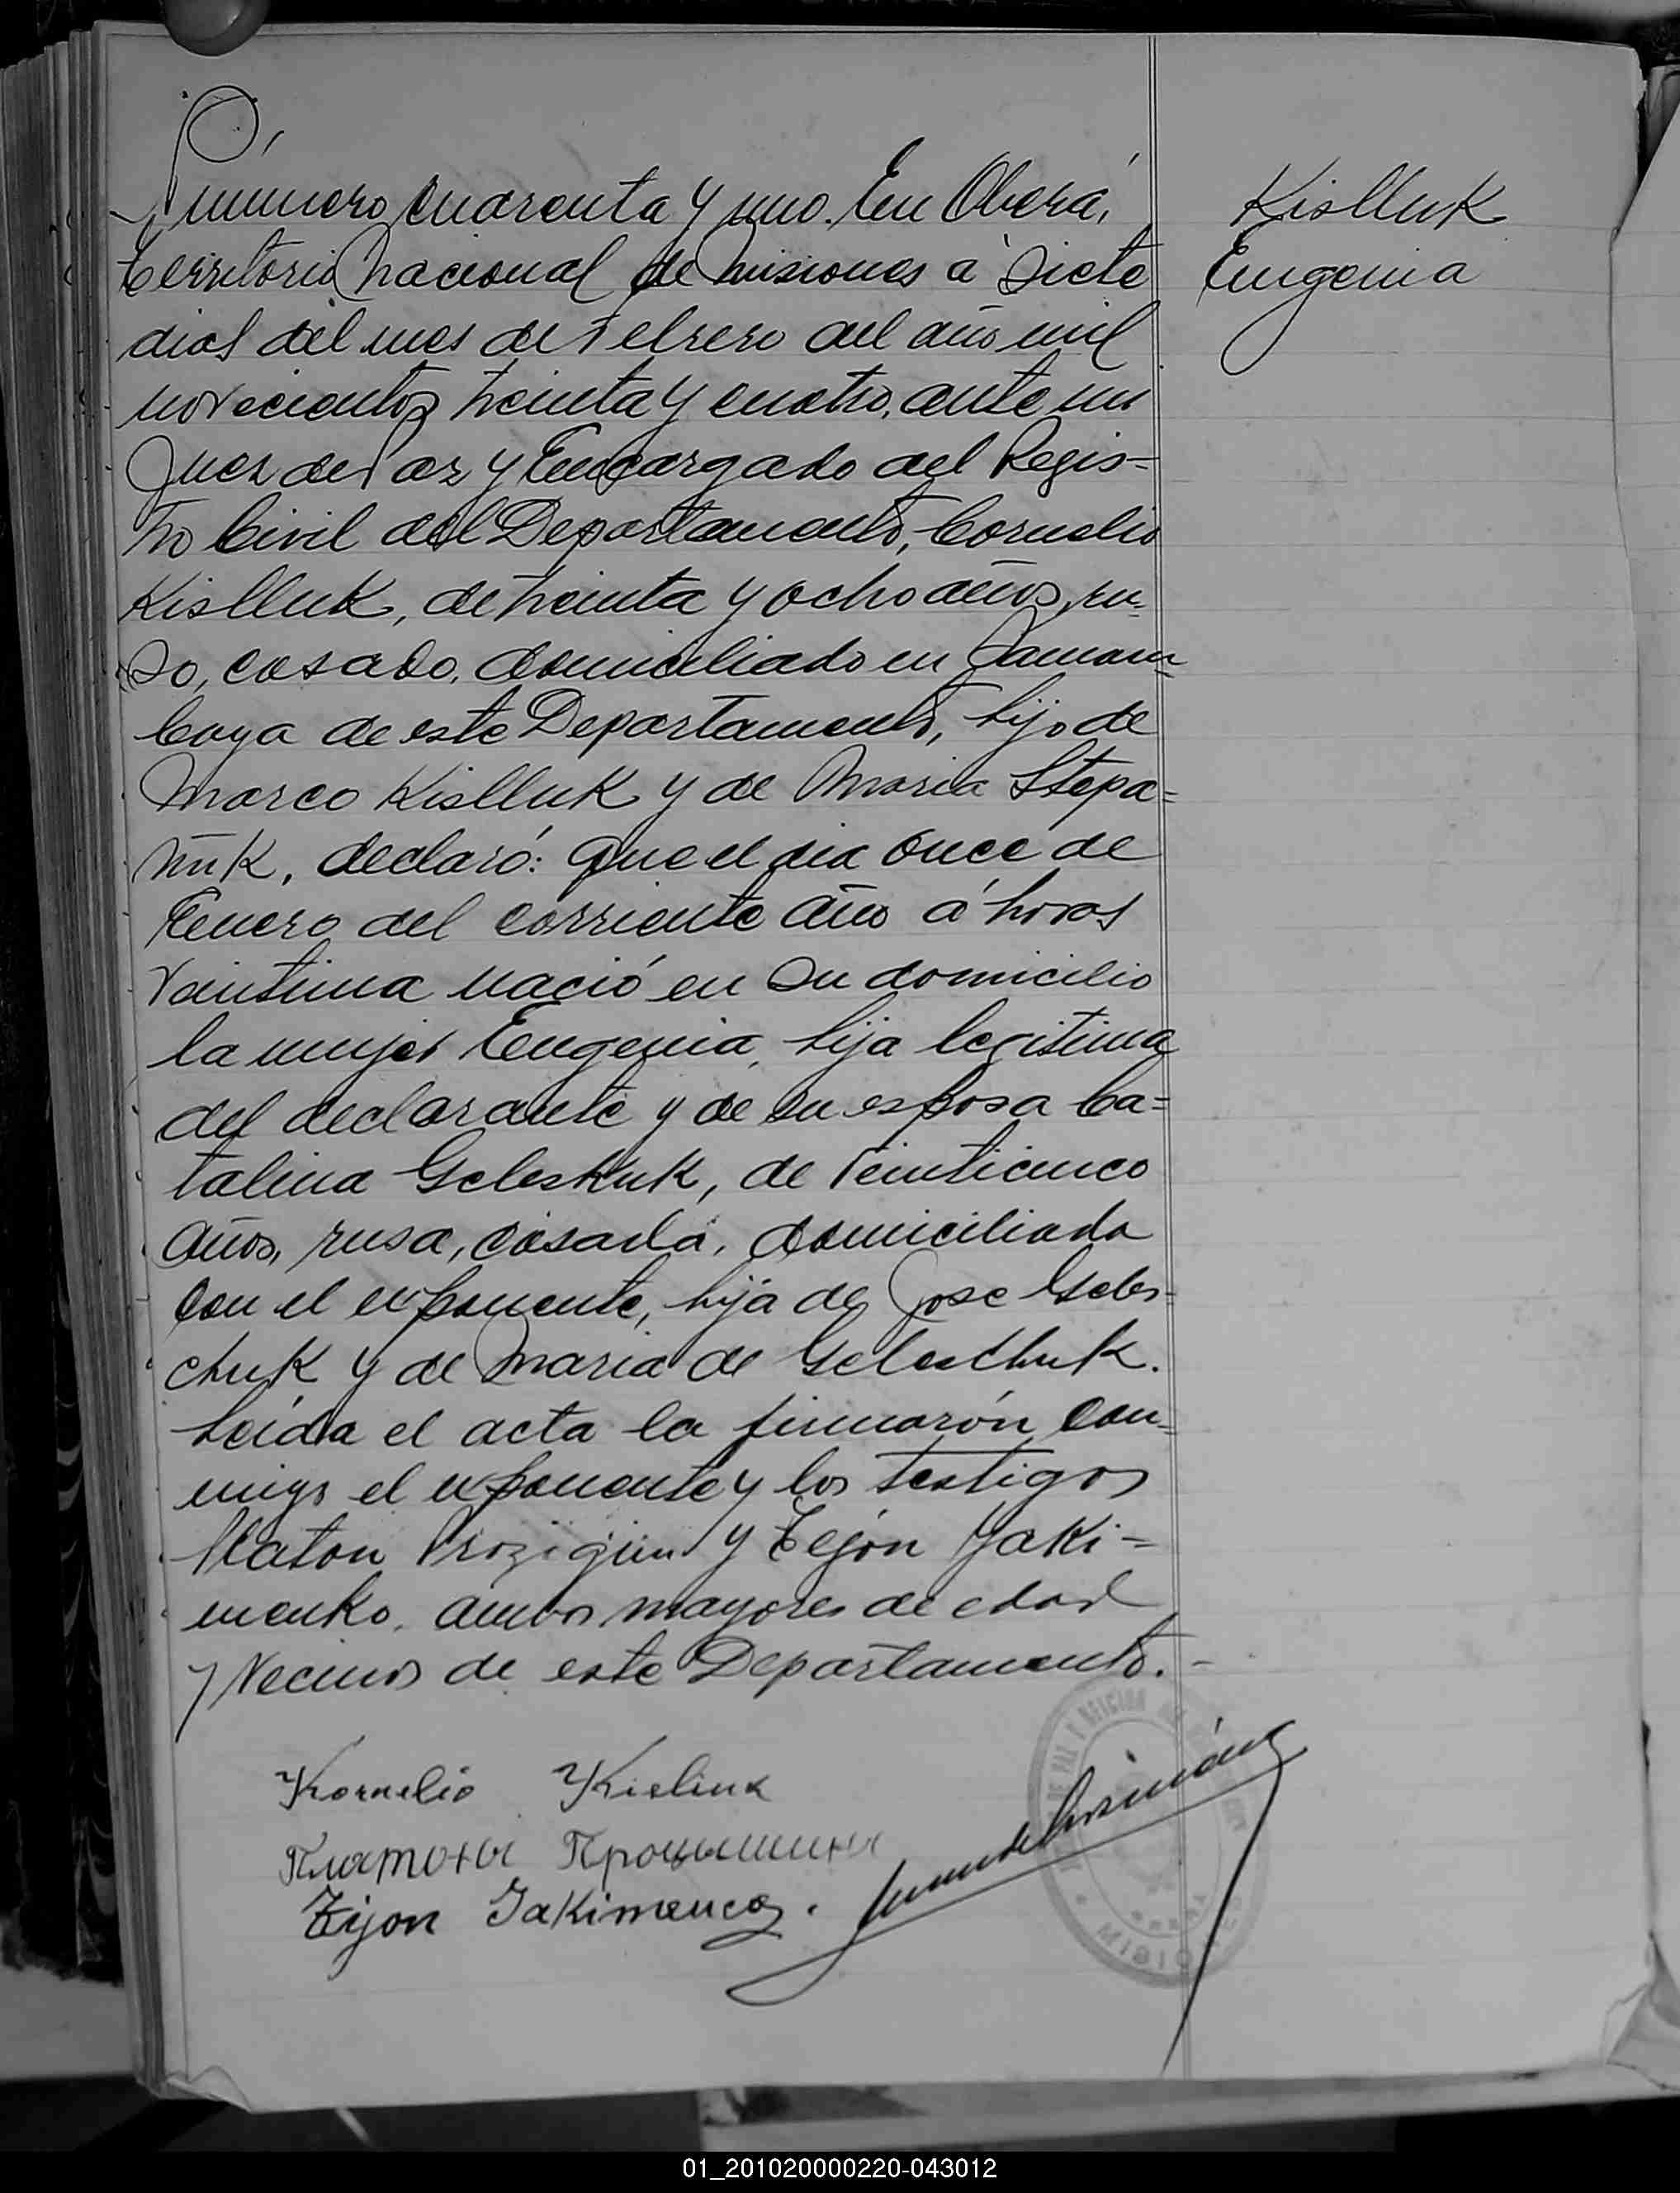 Número cuarenta y uno. En Oberá,
Territorio Nacional de Misiones a siete
dias del mes de Febrero del año mil
novecientos treinta y cuatro, ante mi
Juez de Paz y Encargado del Regis=
tro Civil del Departamento, Cornelio
Kislluk, de treinta y ocho años, ru=
so, casado, domiciliado en
de este Departamento, hijo de
Marco Kislluk y de Maria Stepa=
ñuk, declaró: Que el dia once de
Enero del corriente año á horas
veintiuna nació en su domicilio
la mujer Eugenia, hija legitima
del declarante y de su esposa Ca=
talina Geleshuk, de veinticinco
años, rusa, casada, domiciliada
con el exponente, hija de José Geles=
chuk y de Maria de Geleschuk.
Leída el acta la firmarón con=
migo el exponente y los testigos
Platon y Tejón Yaki=
menko, ambos mayores de edad
y vecinos de este Departamento.-
Kislluk
Eugenia
Kornelio Kisliuk
Платонъ
Tijon Jakimenco.
01_201020000220-043012